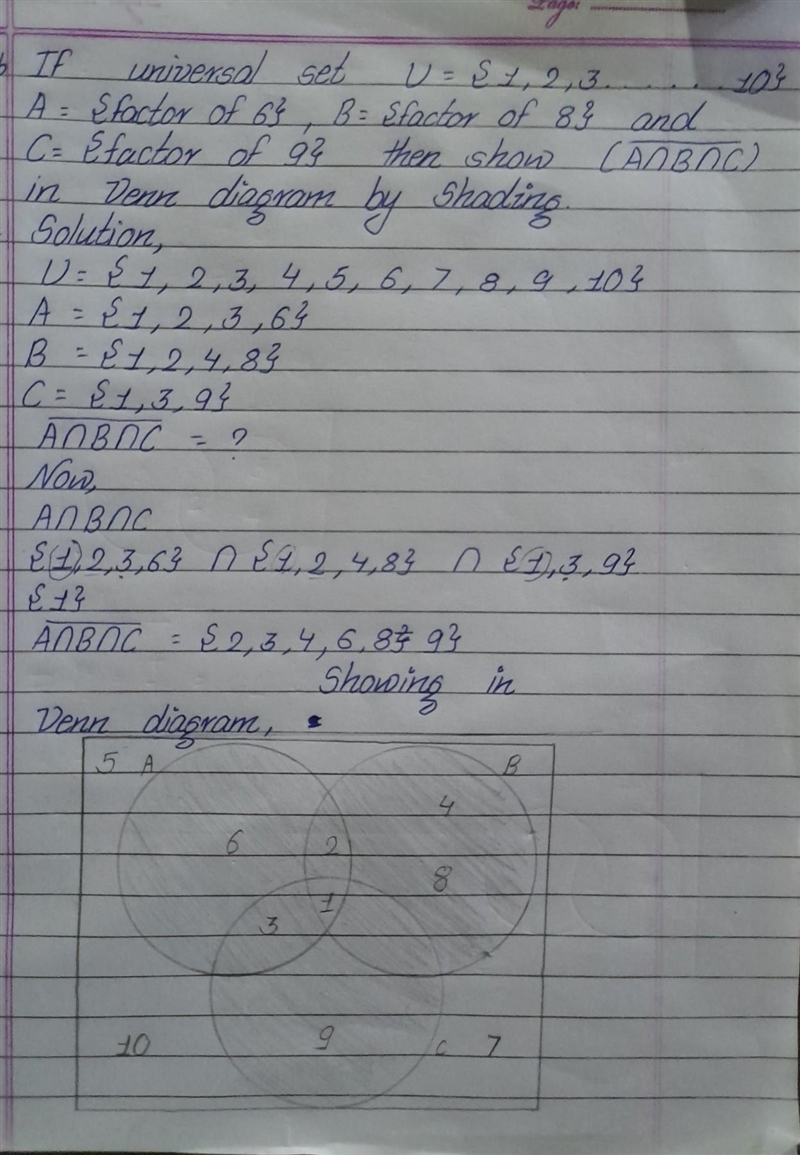 Page:
b If universal set U = {1, 2, 3.......10}
A = {factor of 6}, B = {factor of 8} and
C = {factor of 9} then show (A̅∩̅B̅∩̅C̅)
in Venn diagram by Shading.
Solution,
U = {1, 2, 3, 4, 5, 6, 7, 8, 9, 10}
A = {1, 2, 3, 6}
B = {1, 2, 4, 8}
C = {1, 3, 9}
A̅∩̅B̅∩̅C̅ = ?
Now,
A∩B∩C
{1, 2, 3, 6} ∩ {1, 2, 4, 8} ∩ {1, 3, 9}
{1}
A̅∩̅B̅∩̅C̅ = {2, 3, 4, 6, 8, 9}
Showing in
Venn diagram,
5 A B
4
6 2
8
1
3
10 9 C 7